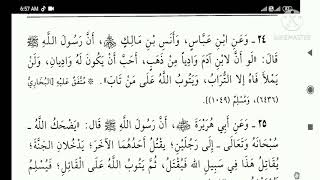 6:57 AM
٢٤ - وَعَنِ ابْنِ عَبَّاسٍ، وَأَنَسِ بْنِ مَالِكٍ ﷺ، أَنَّ رَسُولَ اللَّهِ ﷺ
قَالَ: «لَوْ أَنَّ لابْنِ آدَمَ وَادِياً مِنْ ذَهَبٍ، أَحَبَّ أَنْ يَكُونَ لَهُ وَادِيَانِ، وَلَنْ
يَمْلَأَ فَاهُ إِلَّا التُّرَابُ، وَيَتُوبُ اللَّهُ عَلَى مَنْ تَابَ». * مُتَّفَقٌ عَلَيْهِ [البُخَارِيُّ
(٦٤٣٦)، وَمُسْلِمٌ (١٠٤٩)].
٢٥ - وَعَنْ أَبِي هُرَيْرَةَ، أَنَّ رَسُولَ اللَّهِ ﷺ قَالَ: «يَضْحَكُ اللَّهُ -
سُبْحَانَهُ وَتَعَالَى - إِلَى رَجُلَيْنِ؛ يَقْتُلُ أَحَدُهُمَا الآخَرَ؛ يَدْخُلَانِ الجَنَّةَ؛
يُقَاتِلُ هَذَا فِي سَبِيلِ اللَّهِ فَيُقْتَلُ، ثُمَّ يَتُوبُ اللَّهُ عَلَى الْقَاتِلِ، فَيُسْلِمُ